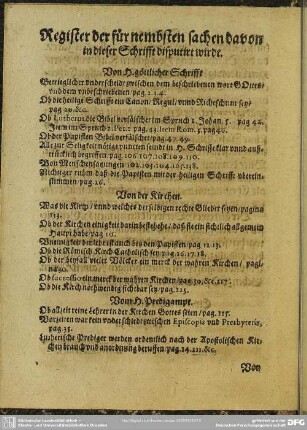 Register der fürnembsten sachen davon
in dieser Schrifft disputirt wirdt.
Von H. göttlicher Schrifft
Betrieglicher underscheidt zwischen dem beschriebenen wort Gottes
und dem unbeschriebenen pag. 2. 3. 4.
Ob die heilige Schrifft ein Canon / Regul / unnd Richtschnur sey /
pag 29. &c.
Ob Lutherus die Bibel verfälschet im Spruch 1. Johan. 5. pag 42.
Item im Spruch 2. Petr. pag 43. item Rom. 3. pag
Ob der Papisten Bibel verfälschet pag 47. 89.
Alle zur Seligkeit nötige puncten seindt in H. Schrifft klar unnd auß-
trücklich begriffen pag 106 107. 108. 109. 110.
Von Menschensatzungen 102. 103. 104. 107. 118.
Nichtiger ruhm daß die Papisten mit der heiligen Schrifft überein-
stimmen / pag 26.
Von der Kirchen.
Was die Kirch / unnd welches derselbigen rechte Glieder seyen / pagina
113.
Ob der Kirchen einigkeit darin bestehe / daß sie ein sichtlich allgemein
Haupt habe / pag 10.
Uneinigkeit der lehr ist auch bey den Papisten / pag 12. 13.
Ob die Römisch Kirch Catholisch sey / pag 16. 17. 18.
Ob der beyfall vieler Völcker ein merck der wahren Kirchen / pagi-
na 90.
Ob successio ein merck der wahren Kirchen / pag 30. &c. 117.
Ob die Kirch nothwendig sichtbar sey / pag. 113.
Vom H. Predigampt.
Ob allzeit reine Lehrer in der Kirchen Gottes seien / pag. 117.
Vorzeiten war kein underschied zwischen Episcopis und Presbyteris,
pag 35.
Lutherische Prediger werden ordentlich nach der Apostolischen Kir-
chen brauch und anordnung beruffen / pag 14. 111. &c.
Von